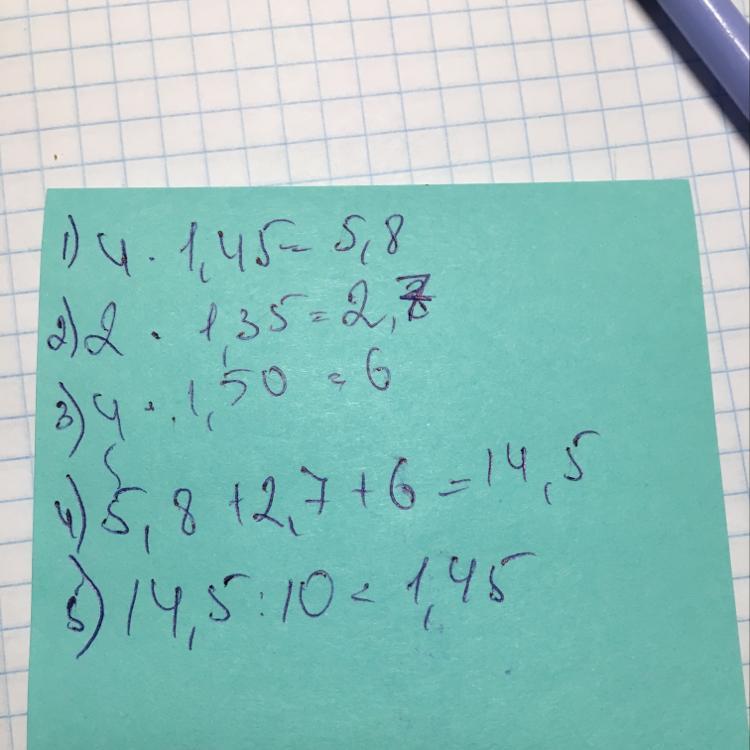 1) 4 · 1,45 = 5,8
2) 2 · 1,35 = 2,7
3) 4 · 1,50 = 6
4) 5,8 + 2,7 + 6 = 14,5
5) 14,5 : 10 = 1,45